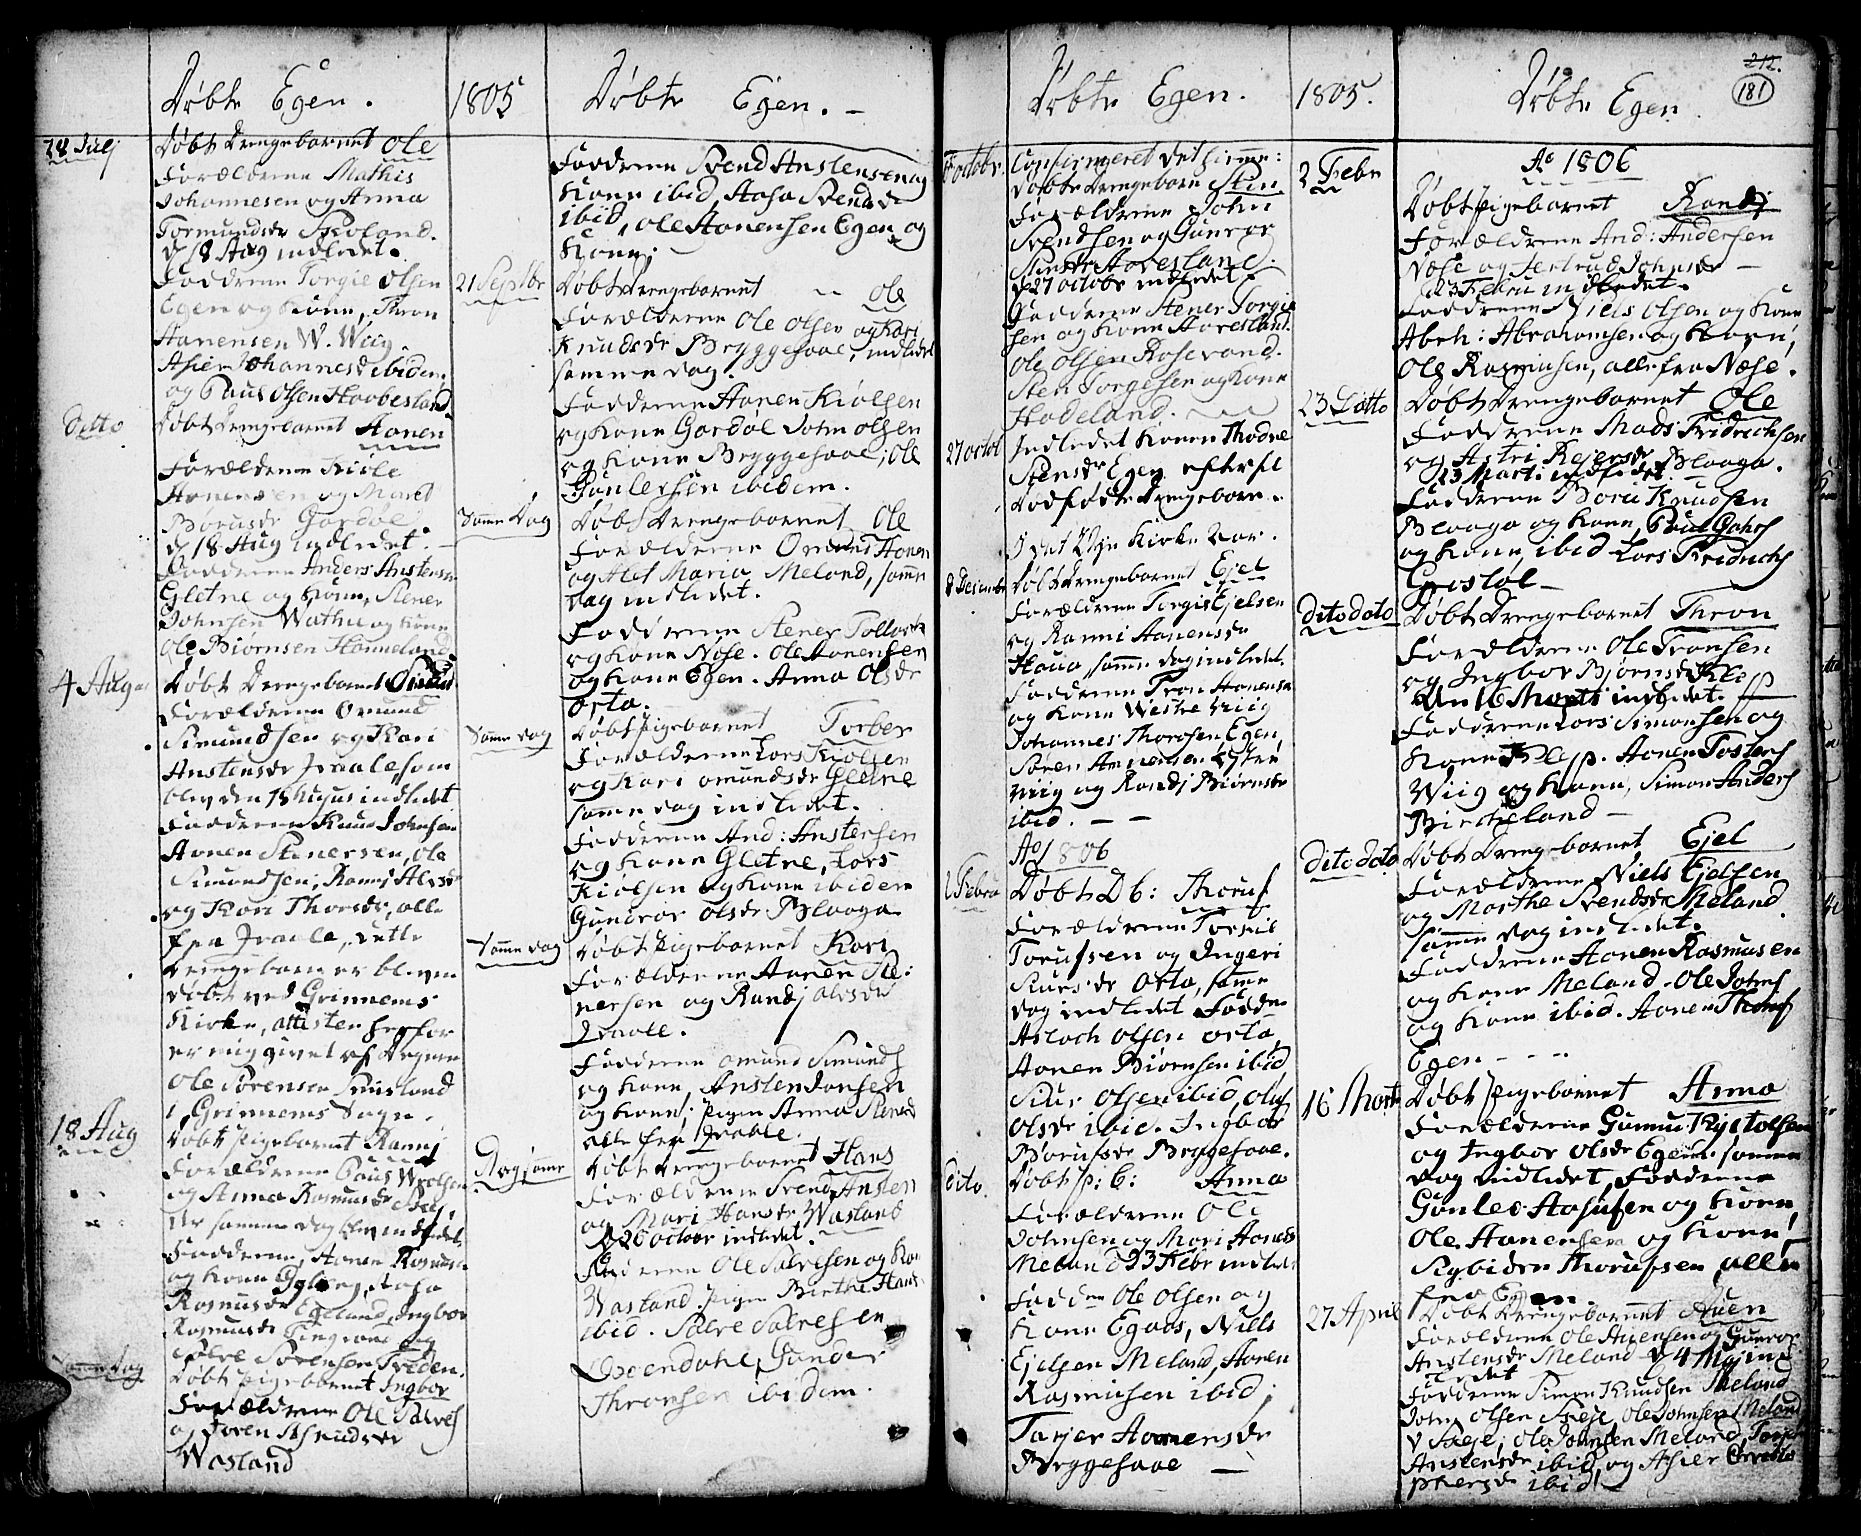 Døbte Egen.
1805
28 Julj
Døbt Drengebarnet Ole
Forældrene Mathis
Johannesen og Anna
Tormundsdr Skoland.
d 18 Aug indledet.
Fadderne Torgie Olsen
Egen og Kone, Thron
Aanensen W. Wiig.
Asier Johannesd ibidem,
og Paul Olsen Haabesland.
Ditto
Døbt Drengebarnet Aanen
Forældrene Kiøle
Aanensen og Maret
Børusdr Gardøl,
d 18 Aug indledet.
Fadderne Anders Anstensen
Gletne og Kone, Stener
Johnsen Wathne og Kone
Ole Biørnsen Hanneland.
4 Aug
Døbt Drengebarnet
Forældrene Omund
Simundsen og Kari
Anstensdr Iraale, som
blev den 18 August indledet
Fadderne Knud Johnsen
Aanen Stenersen, Ole
Simundsen, Ranj Alvsdr
og Kari Thorsdr, alle
fra Iraale, dette
Drengebarn er bleven
døbt ved Grinnems
Kirke, attesten herfor
er mig givet af Degnen
Ole Sørensen
i Grinnems Sogn.
18 Aug
Døbt Pigebarnet Ranni
Forældrene Paul
og Anna Rasmusdr
der samme dag blev indledet
Fadderne, Aanen Rasmusen
og Kone Aasa
Rasmusdr Egeland, Ingbor
Rasmusdr og
Salve Sørensen
Samme Dag
Døbt Pigebarnet Ingbor
Forældrene Ole Salves
og Joren Asbiudsdr
Wasland
Døbte Egen.
Fadderne Svend Anstensen og
Kone ibid, Aasa Svendsdr
ibid, Ole Aanensen Egen og
Kone.
21 Septbr
Døbt Drengebarnet Ole
Forældrene Ole Olsen og Kari
Knudsdr Bryggesaae, indledet
samme dag.
Fadderne Aanen Kiølsen
og Kone Gardøl John Olsen
og Kone Bryggesaae, Ole
Gunlevsen ibidem.
Samme Dag
Døbt Drengebarnet Ole
Forældrene Omund Aanen
og Alet Maria Meland, samme
dag indledet.
Fadderne Stener Tollevs
og Kone Nøse. Ole Aanensen
og Kone Egen. Anna Olsdr
Orta.
Samme dag
Døbt Pigebarnet Torber
Forældrene Lars Kiølsen
og Kari Omundsdr Gletne
samme dag indledet.
Fadderne And: Anstensen
og Kone Gletne, Lars
Kiølsen og Kone ibidem
Gunvor Olsdr Blaaga
Samme dag
Døbt Pigebarnet Kari
Forældrene Aanen Ste:
nersen og Randj Olesdr
Iraale.
Fadderne Omund Simunds
og Kone, Ansten Jonsen
og Kone, Pigen Anna Stenersd
alle fra Iraale.
Dag samme
Døbt Drengebarnet Hans
Forældrene Svend Ansten
og Mari Hansdr Wasland
d 20 octobr indledet.
Fadderne Ole Salvesen og Kone
Wasland. Pigen Birthe Hans
ibid. Salve Salvesen
Gunder
Thronsen ibidem.
Døbte Egen.
1805.
octobr
Confirmeret det hiemme:
døbte Drengebarn Sten
Forældrene John
Svendsen og Gunvor
Stensdr Aaresland.
d 27 octobr indledet.
Fadderne Stener Torgie
sen og Kone Aaresland.
Ole Olsen Rosevand.
Sten Torgesen og Kone
Hadeland.
27 octob
Indledet Konen Thodne
Stensdr Egen efter et
Dødføde Drengebarn.
I det Øje Kirke var.
8 Decembr
Døbt Drengebarnet Ejel
Forældrene Torgis Ejelsen
og Ranni Aanensdr
Haua, samme dag indledet.
Fadderne Tron Aanensen
og Kone Westre Wiig
Johannes Thorosen Egen
Søren Aanensen Østre
Wiig og Randj Biørnsdr
ibid.
Ao 1806
2 Februa
Døbt Db: Thoruf
Forældrene Torkil
Torufsen og Ingeri
Siursdr Orta, samme
dag indledet Fadderne
Asloch Olsen Orta,
Aanen Biørnsen ibid
Siur Olsen ibid, Oluf
Olsdr ibid. Ingbor
Børusdr Bryggesaae.
Dito.
Døbt P: b: Anna
Forældrene Ole
Johnsen og Mari Aanensdr
Meland d 23 Febr indledet
Fadderne Ole Olsen og
Kone Egaas, Niels
Ejelsen Meland, Aanen
Rasmusen ibid,
Tarjer Aanensdr
Bryggesaae
Døbte Egen
212.
181
Ao 1806
2 Febr
Døbt Pigebarnet Randj
Forældrene And: Andersen
Nøse og Jertrud Johnsdr
d 23 Febru indledet.
Fadderne Niels Olsen og Kone
Abrh: Abrahamsen og Kone,
Ole Rasmusen, alle fra Nøse.
23 Datto
Døbt Drengebarnet Ole
Fadderne Mads Fridrichsen
og Astri Rejersdr Blaaga.
d 23 Marti indledet.
Fadderne Børu Knudsen
Blaaga og Kone, Paul Gahrs
og Kone ibid Lars Fredrichs
Gostøl
Dito dato
Døbt Drengebarnet Thron
Forældrene Ole Tronsen
og Ingbor Biørnsdr Klep
den 16 Marti indledet.
Fadderne Lars Simonsen og
Kone Klep. Aanen Tostens
Wiig og Kone, Simon Anders
Birkeland
Dito dato
Døbt Drengebarnet Ejel
Forældrene Niels Ejelsen
og Marthe Svendsdr Meland
samme dag indledet.
Fadderne Aanen Rasmusen
og Kone Meland. Ole Johns
og Kone ibid. Aanen Thorufs
Egen
16 Marti
Døbt Pigebarnet Anna
Forældrene Gunnu Kystolfsen
og Ingbor Olsdr Egen samme
dag indledet, Fadderne
Gunleo Aasufsen og Kone,
Ole Aanensen og Kone,
Sigbiden Thorufsen, alle
fra Egen.
27 April
Døbt Drengebarnet Auen
Forældrene Ole Auensen og Gunvor
Anstensdr Meland d 4 Maj ind
ledet
Fadderne Simon Knudsen Meland
John Olsen Ole Johnsen Meland
Ole Johnsen Meland, Torjer
Anstensdr ibid, og Asier
phersdr ibid